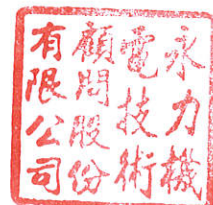 永力機
電技術
顧問股份
有限公司